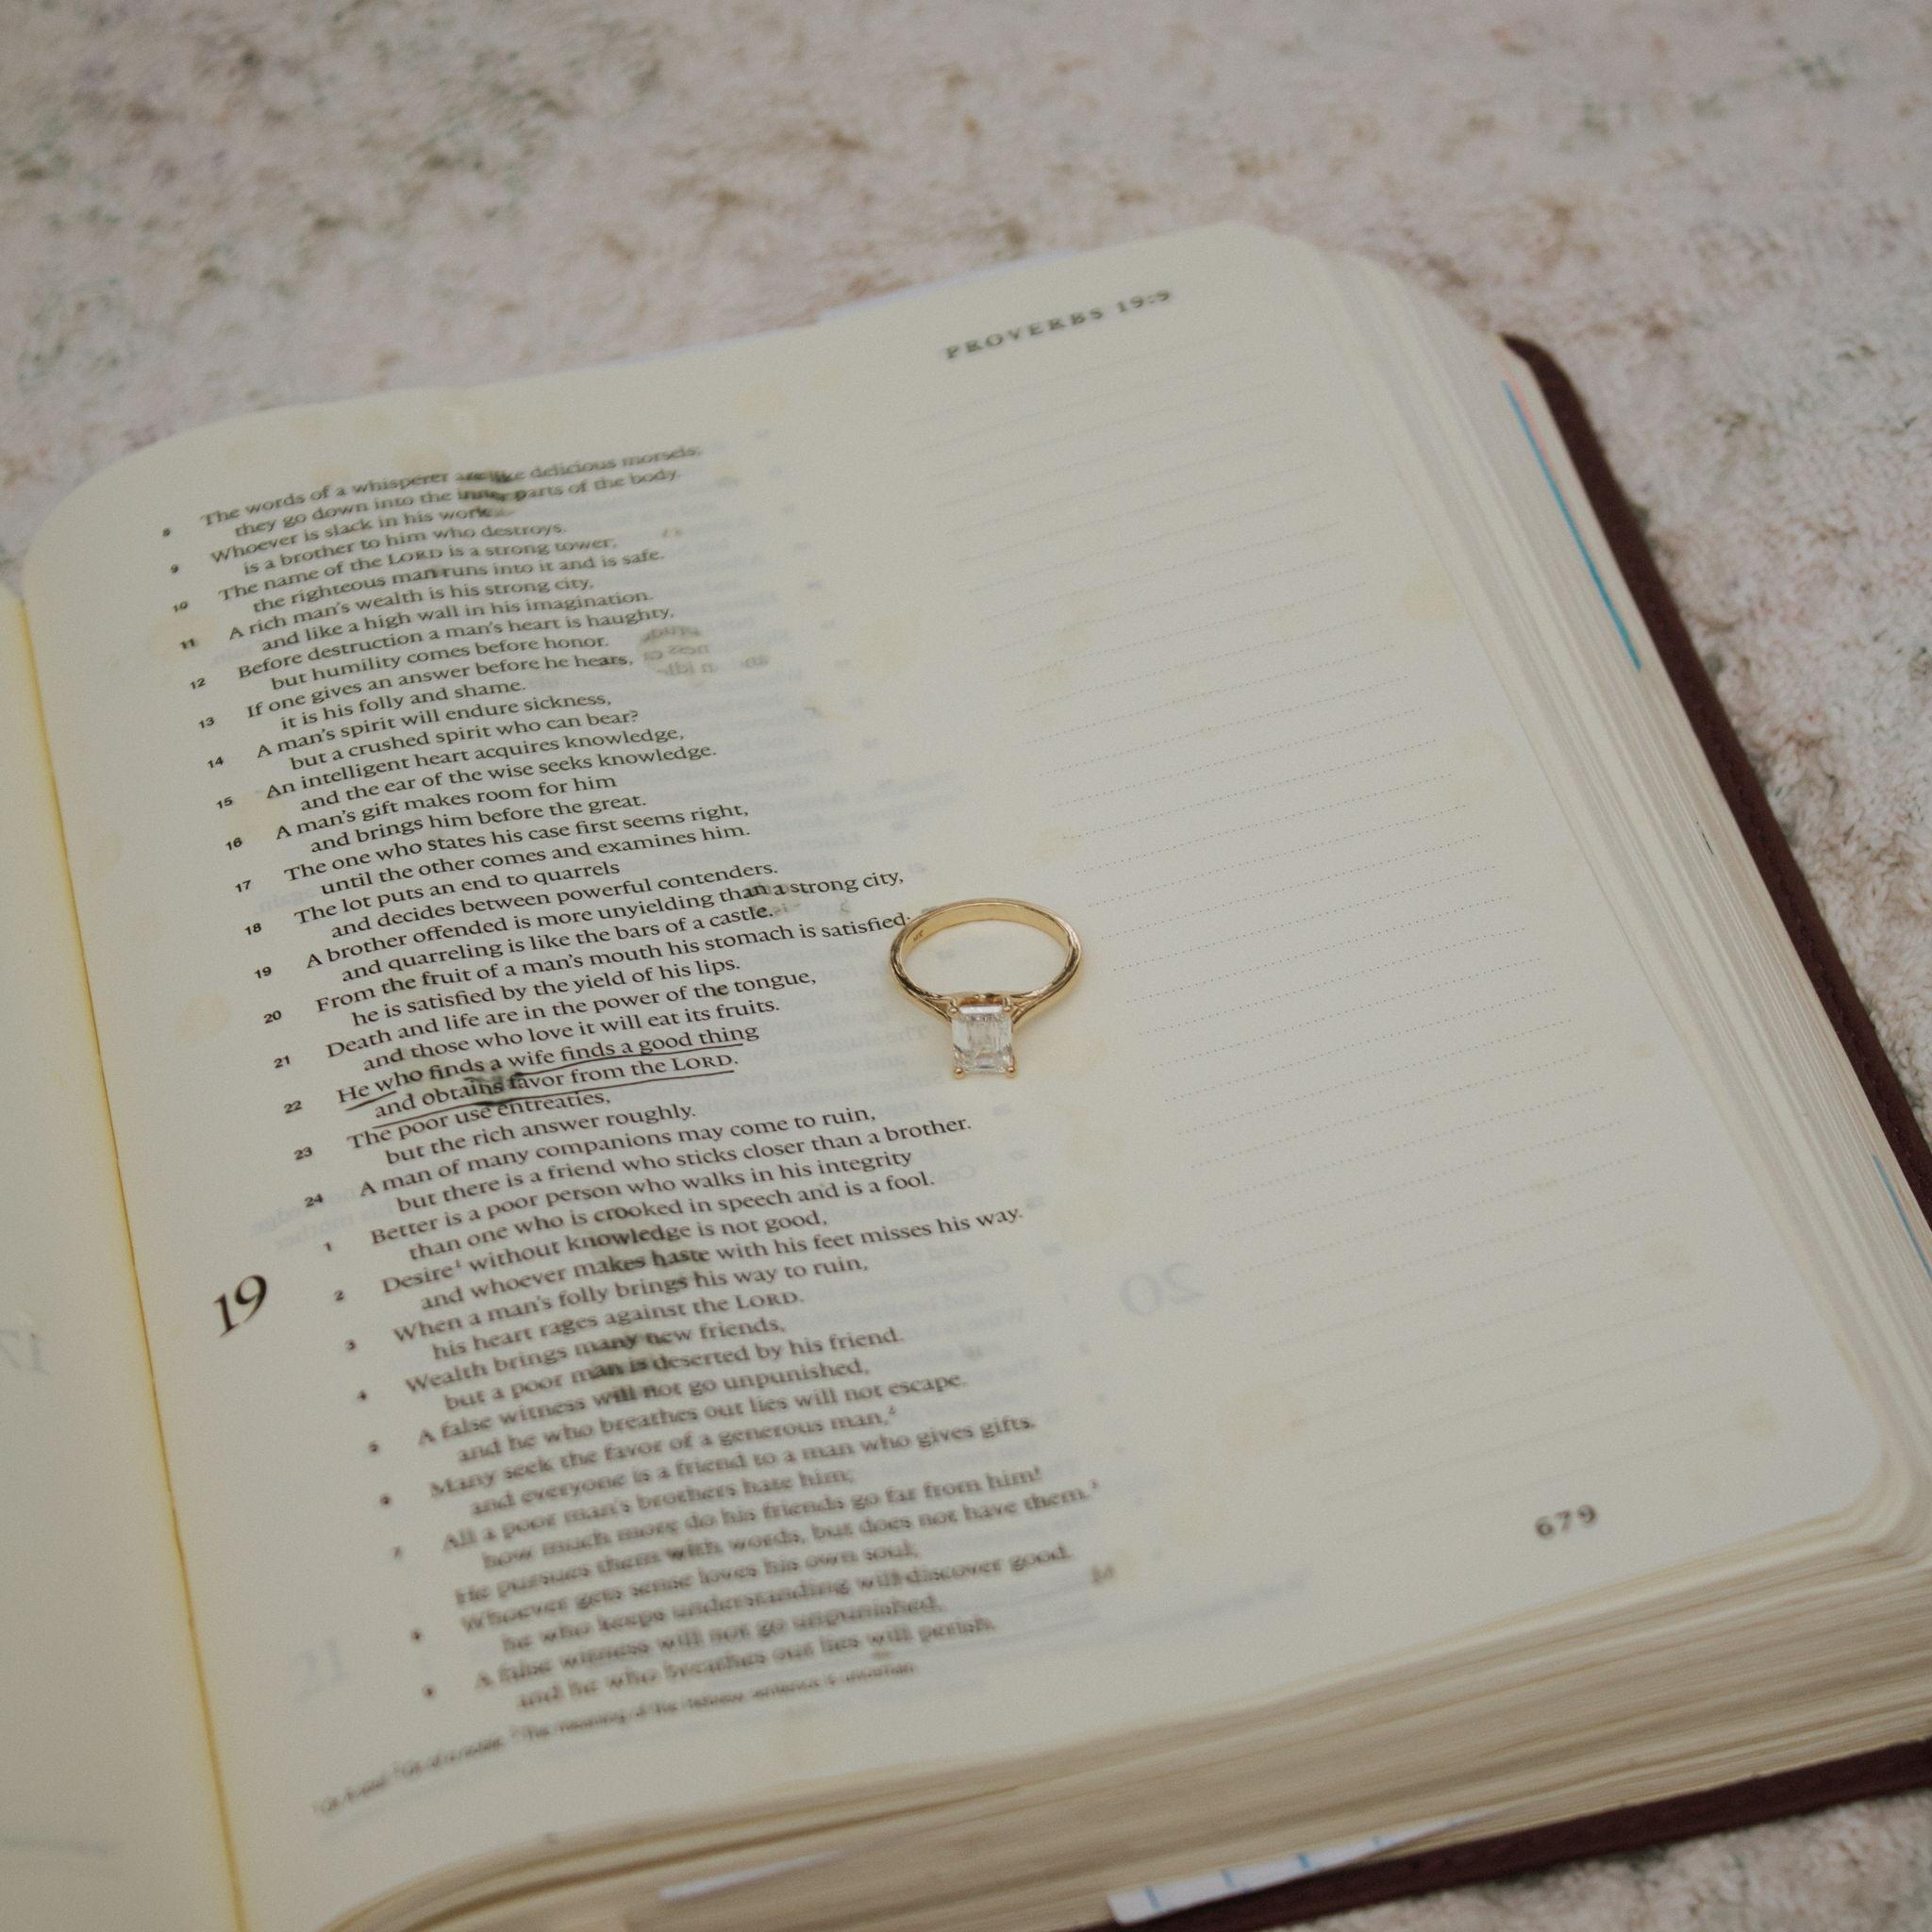 PROVERBS 19:9
8 The words of a whisperer are like delicious morsels;
they go down into the inner parts of the body.
9 Whoever is slack in his work
is a brother to him who destroys.
10 The name of the LORD is a strong tower;
the righteous man runs into it and is safe.
11 A rich man's wealth is his strong city,
and like a high wall in his imagination.
12 Before destruction a man's heart is haughty,
but humility comes before honor.
13 If one gives an answer before he hears,
it is his folly and shame.
14 A man's spirit will endure sickness,
but a crushed spirit who can bear?
15 An intelligent heart acquires knowledge,
and the ear of the wise seeks knowledge.
16 A man's gift makes room for him
and brings him before the great.
17 The one who states his case first seems right,
until the other comes and examines him.
18 The lot puts an end to quarrels
and decides between powerful contenders.
19 A brother offended is more unyielding than a strong city,
and quarreling is like the bars of a castle.
20 From the fruit of a man's mouth his stomach is satisfied;
he is satisfied by the yield of his lips.
21 Death and life are in the power of the tongue,
and those who love it will eat its fruits.
22 He who finds a wife finds a good thing
and obtains favor from the LORD.
23 The poor use entreaties,
but the rich answer roughly.
24 A man of many companions may come to ruin,
but there is a friend who sticks closer than a brother.
19 1 Better is a poor person who walks in his integrity
than one who is crooked in speech and is a fool.
2 Desire¹ without knowledge is not good,
and whoever makes haste with his feet misses his way.
3 When a man's folly brings his way to ruin,
his heart rages against the LORD.
4 Wealth brings many new friends,
but a poor man is deserted by his friend.
5 A false witness will not go unpunished,
and he who breathes out lies will not escape.
6 Many seek the favor of a generous man,²
and everyone is a friend to a man who gives gifts.
7 All a poor man's brothers hate him;
how much more do his friends go far from him!
He pursues them with words, but does not have them.³
8 Whoever gets sense loves his own soul;
he who keeps understanding will discover good.
9 A false witness will not go unpunished,
and he who breathes out lies will perish.
³ The meaning of the Hebrew sentence is uncertain
679